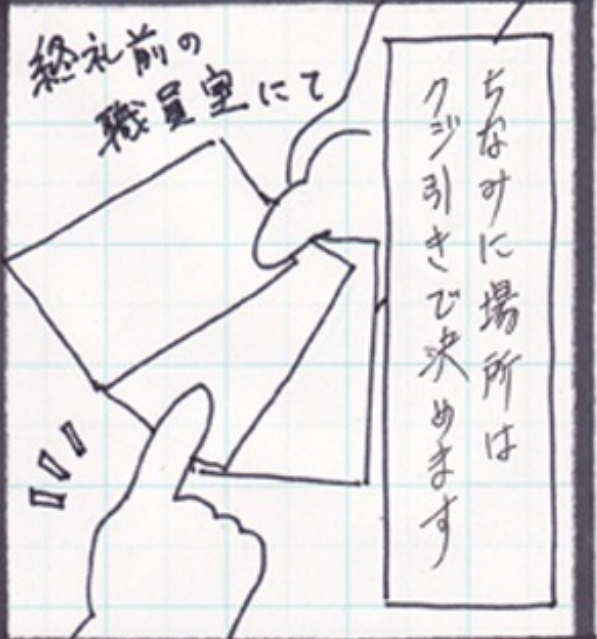 ちなみに場所は
クジ引きで決めます
終礼前の
職員室にて